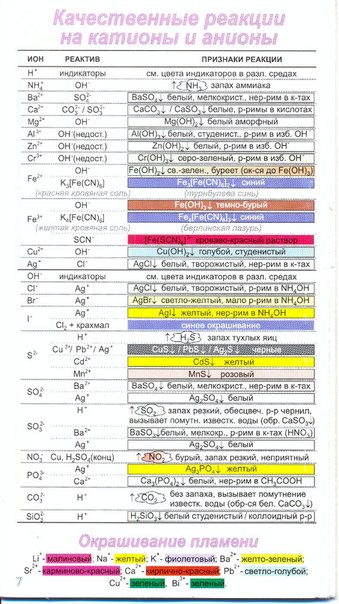 Качественные реакции
на катионы и анионы
ИОН РЕАКТИВ ПРИЗНАКИ РЕАКЦИИ
H⁺ индикаторы см. цвета индикаторов в разл. средах
NH₄⁺ OH⁻ ↑NH₃ запах аммиака
Ba²⁺ SO₄²⁻ BaSO₄↓ белый, мелкокрист., нер-рим в к-тах
Ca²⁺ CO₃²⁻ / SO₃²⁻ CaCO₃↓ / CaSO₃↓ белые, р-римы в кислотах
Mg²⁺ OH⁻ Mg(OH)₂↓ белый аморфный
Al³⁺ OH⁻(недост.) Al(OH)₃↓ белый, студенист., р-рим в изб. OH⁻
Zn²⁺ OH⁻(недост.) Zn(OH)₂↓ белый, р-рим в изб. OH⁻
Cr³⁺ OH⁻(недост.) Cr(OH)₃↓ серо-зеленый, р-рим в изб. OH⁻
Fe²⁺ OH⁻ Fe(OH)₂↓ св.-зелен., буреет (ок-ся до Fe(OH)₃)
K₃[Fe(CN)₆] Fe₃[Fe(CN)₆]₂↓ синий
(красная кровяная соль) (турнбулева синь)
Fe³⁺ OH⁻ Fe(OH)₃↓ темно-бурый
K₄[Fe(CN)₆] Fe₄[Fe(CN)₆]₃↓ синий
(желтая кровяная соль) (берлинская лазурь)
SCN⁻ [Fe(SCN)ₙ]⁺ кроваво-красный раствор
Cu²⁺ OH⁻ Cu(OH)₂↓ голубой, студенистый
Ag⁺ Cl⁻ AgCl↓ белый, творожистый, нер-рим в к-тах
OH⁻ индикаторы см. цвета индикаторов в разл. средах
Cl⁻ Ag⁺ AgCl↓ белый, творожистый, р-рим в NH₄OH
Br⁻ Ag⁺ AgBr↓ светло-желтый, мало р-рим в NH₄OH
I⁻ Ag⁺ AgI↓ желтый, нер-рим в NH₄OH
Cl₂ + крахмал синее окрашивание
S²⁻ H⁺ ↑H₂S запах тухлых яиц
Cu²⁺/ Pb²⁺/ Ag⁺ CuS↓ / PbS↓ / Ag₂S↓ черные
Cd²⁺ CdS↓ желтый
Mn²⁺ MnS↓ розовый
SO₄²⁻ Ba²⁺ BaSO₄↓ белый, мелкокрист., нер-рим в к-тах
Ag⁺ Ag₂SO₄↓ белый
SO₃²⁻ H⁺ ↑SO₂ запах резкий, обесцвеч. р-р чернил,
вызывает помутн. известк. воды (обр. CaSO₃↓)
Ba²⁺ BaSO₃↓ белый, мелкокр., р-рим в к-тах (HNO₃)
Ag⁺ Ag₂SO₃↓ белый
NO₃⁻ Cu, H₂SO₄(конц) ↑NO₂ бурый, запах резкий, неприятный
PO₄³⁻ Ag⁺ Ag₃PO₄↓ желтый
Ca²⁺ Ca₃(PO₄)₂↓ белый, нер-рим в CH₃COOH
CO₃²⁻ H⁺ ↑CO₂ без запаха, вызывает помутнение
известк. воды (обр-ся бел. CaCO₃↓)
SiO₃²⁻ H⁺ H₂SiO₃↓ белый студенистый / коллоидный р-р
Окрашивание пламени
Li⁺- малиновый; Na⁺- желтый; K⁺- фиолетовый; Ba²⁺- желто-зеленый;
Sr²⁺- карминово-красный; Ca²⁺- кирпично-красный; Pb²⁺- светло-голубой;
Cu²⁺- зеленый, Bi³⁺- зеленый.
7